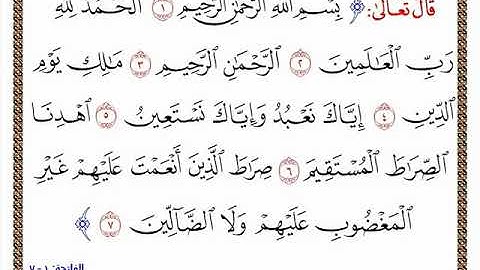 قال تعالى: ﴿ بِسْمِ ٱللَّهِ ٱلرَّحْمَٰنِ ٱلرَّحِيمِ ١ ٱلْحَمْدُ لِلَّهِ
رَبِّ ٱلْعَٰلَمِينَ ٢ ٱلرَّحْمَٰنِ ٱلرَّحِيمِ ٣ مَٰلِكِ يَوْمِ
ٱلدِّينِ ٤ إِيَّاكَ نَعْبُدُ وَإِيَّاكَ نَسْتَعِينُ ٥ ٱهْدِنَا
ٱلصِّرَٰطَ ٱلْمُسْتَقِيمَ ٦ صِرَٰطَ ٱلَّذِينَ أَنْعَمْتَ عَلَيْهِمْ غَيْرِ
ٱلْمَغْضُوبِ عَلَيْهِمْ وَلَا ٱلضَّآلِّينَ ٧ ﴾
الفاتحة: ١ - ٧